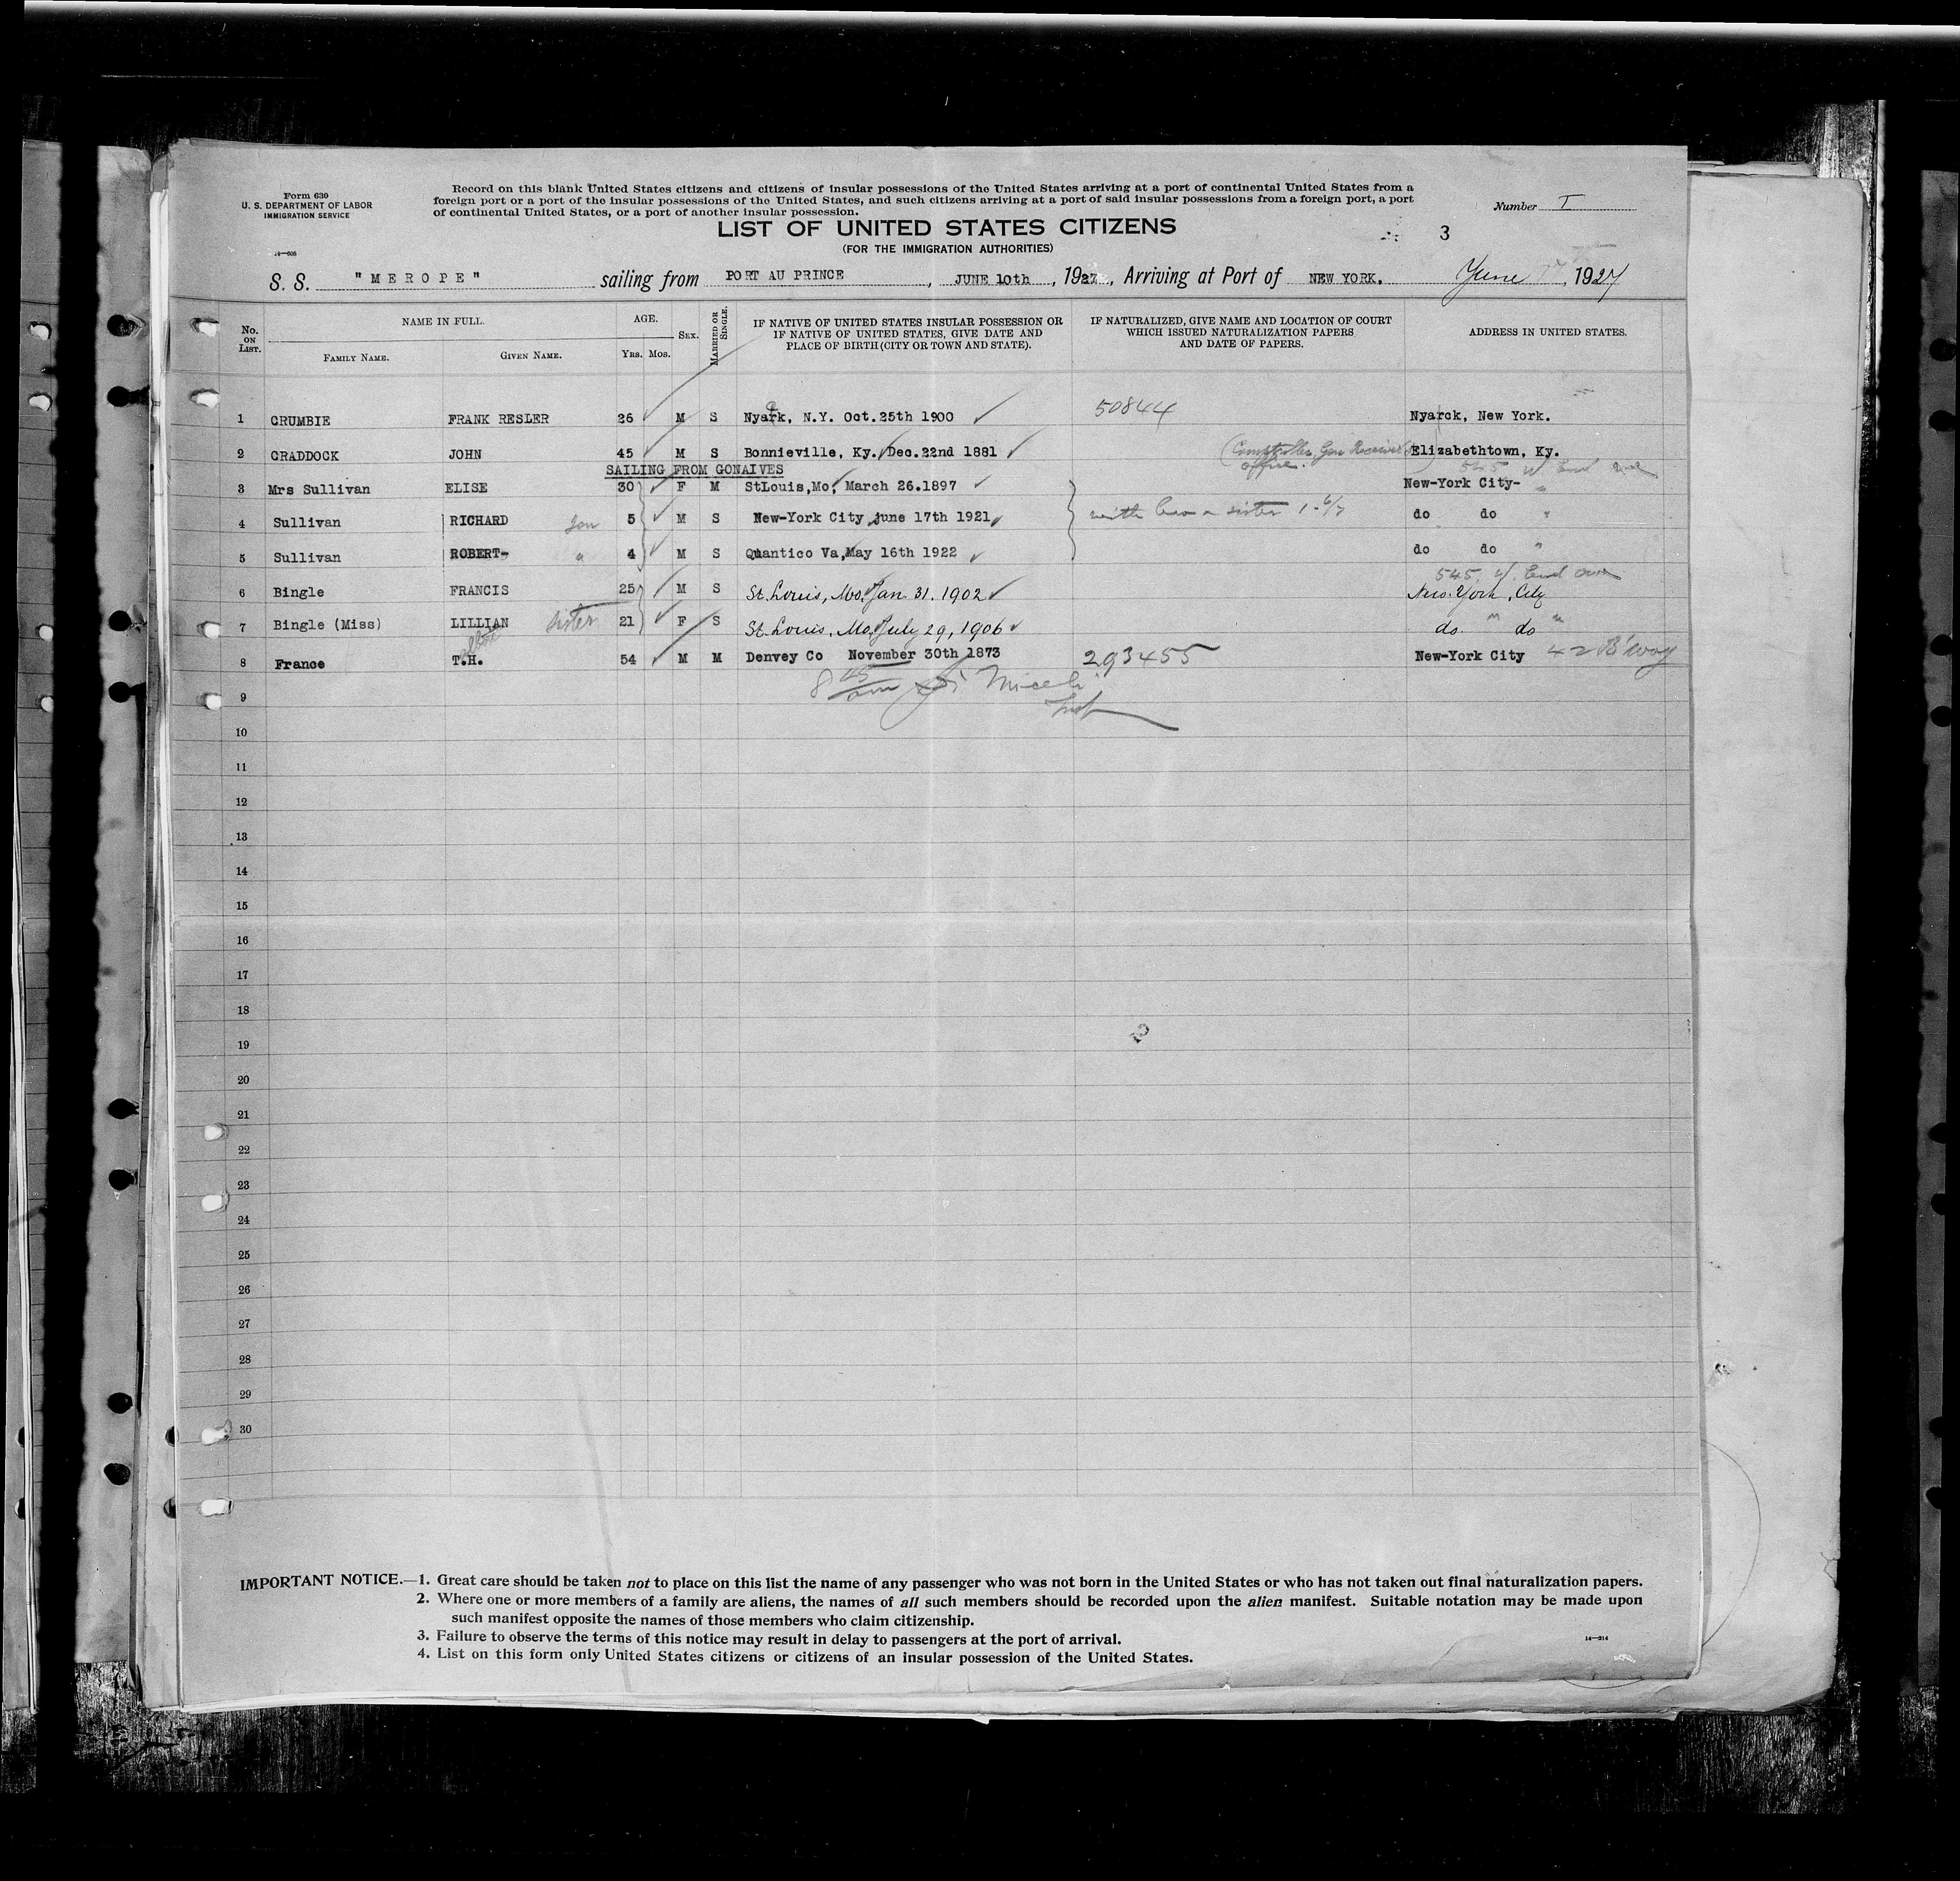 Form 630
U. S. DEPARTMENT OF LABOR
IMMIGRATION SERVICE
Record on this blank United States citizens and citizens of insular possessions of the United States arriving at a port of continental United States from a
foreign port or a port of the insular possessions of the United States, and such citizens arriving at a port of said insular possessions from a foreign port, a port
of continental United States, or a port of another insular possession.
Number I
LIST OF UNITED STATES CITIZENS
3
(FOR THE IMMIGRATION AUTHORITIES)
14—608
S. S. "MEROPE" sailing from PORT AU PRINCE, JUNE 10th, 1927, Arriving at Port of NEW YORK. June 1927
No. ON LIST.
NAME IN FULL.
FAMILY NAME. GIVEN NAME.
AGE.
YRS. MOS.
SEX.
MARRIED OR SINGLE.
IF NATIVE OF UNITED STATES INSULAR POSSESSION OR
IF NATIVE OF UNITED STATES, GIVE DATE AND
PLACE OF BIRTH (CITY OR TOWN AND STATE).
IF NATURALIZED, GIVE NAME AND LOCATION OF COURT
WHICH ISSUED NATURALIZATION PAPERS
AND DATE OF PAPERS.
ADDRESS IN UNITED STATES.
1 CRUMBIE FRANK RESLER 26 M S Nyark, N.Y. Oct. 25th 1900 50844 Nyarck, New York.
2 CRADDOCK JOHN 45 M S Bonnieville, Ky. Dec. 22nd 1881 (Comptroller, Gen Receiver office.) Elizabethtown, Ky.
SAILING FROM GONAIVES
545 W End ave
3 Mrs Sullivan ELISE 30 F M StLouis,Mo; March 26.1897 New-York City- "
4 Sullivan RICHARD son 5 M S New-York City june 17th 1921 with sister do do "
5 Sullivan ROBERT- " 4 M S Quantico Va,May 16th 1922 do do "
545 W. End ave
6 Bingle FRANCIS 25 M S St. Louis, Mo. Jan. 31. 1902 New-York, City
7 Bingle (Miss) LILLIAN sister 21 F S St. Louis, Mo. July 29, 1906 do. " do "
8 France T.H. 54 M M Denvey Co November 30th 1873 293455 New-York City 42 B'way
8 45 am Miceli
Insp
9
10
11
12
13
14
15
16
17
18
19
20
21
22
23
24
25
26
27
28
29
30
IMPORTANT NOTICE.—1. Great care should be taken not to place on this list the name of any passenger who was not born in the United States or who has not taken out final naturalization papers.
2. Where one or more members of a family are aliens, the names of all such members should be recorded upon the alien manifest. Suitable notation may be made upon
such manifest opposite the names of those members who claim citizenship.
3. Failure to observe the terms of this notice may result in delay to passengers at the port of arrival.
14—314
4. List on this form only United States citizens or citizens of an insular possession of the United States.